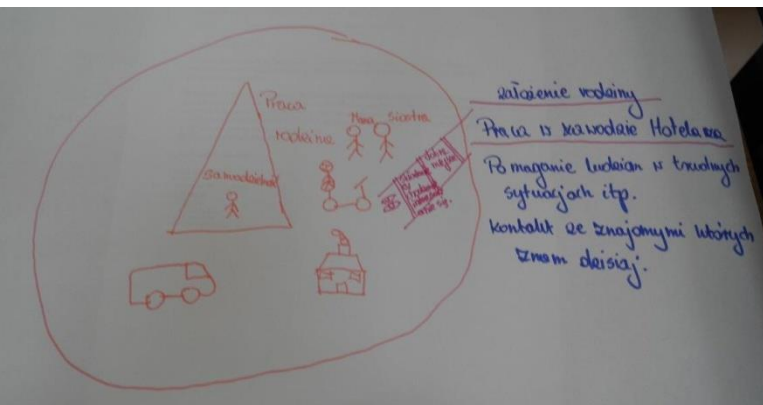 Praca
rodzina
Mama siostra
samodzielność
założenie rodziny
Praca w zawodzie Hotelarza
Pomaganie ludzian w trudnych
sytuacjach itp.
kontakt ze znajomymi których
znam dzisiaj.